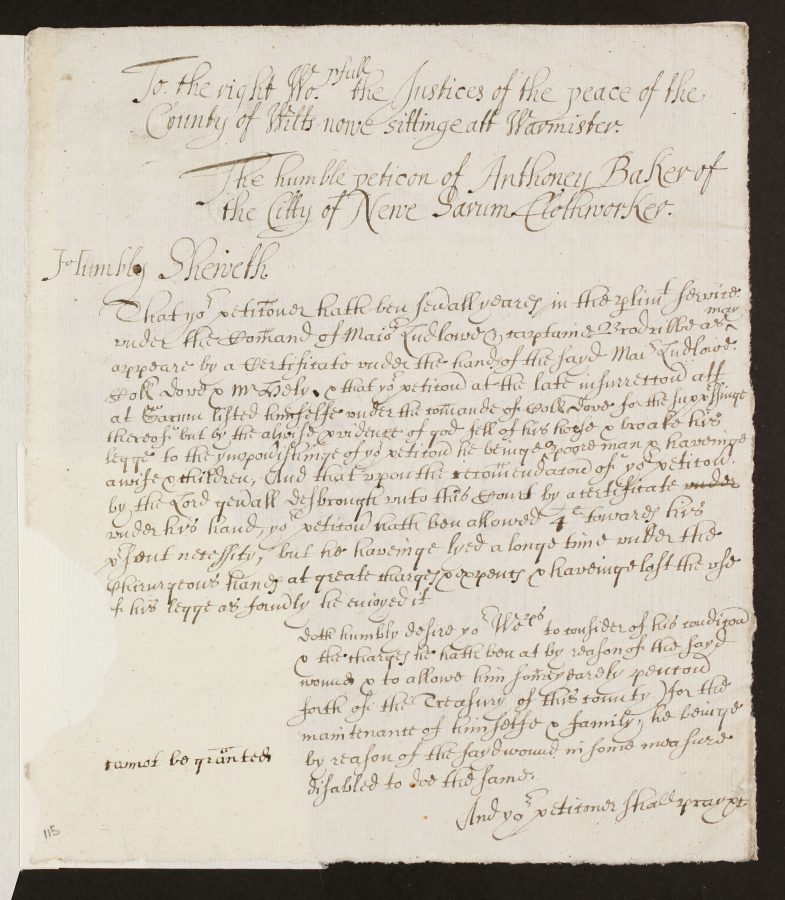 To. the right Wo.pfull the Justices of the peace of the
County of Wilts nowe sittinge att Warmister.
The humble peticon of Anthoney Baker of
the Citty of Newe Sarum Clothworker.
Humbly Sheweth
That yor petitoner hath ben sevall yeares in the plimt service
under the Comand of Maior Ludlowe & captaine Brodribbe as may
appeare by a Certificate under the hands of the sayd Maior Ludlowe
Coll Dove & Mr Hely, & that yor petitcon at the late insurrectcon att
at Sarum listed himselfe under the comande of Coll Dove for the suppssinge
thereof: but by the alwise pvidence of god fell of his horse & broake his
legge to the impovishinge of yor petitcon he beinge a poore man & haveinge
a wife & children, And that upon the recomendacon of yor petitcon
by the Lord genall Desbrough unto this Court by a certificate under
under his hand, yor petitcon hath ben allowed 4l towards his
psent necessity, but he haveinge lyed a longe time under the
Chirurgeons hands at greate charges & expences & haveinge lost the use
of his legge as formly he enjoyed it
doth humbly desire yor Worps to consider of his condicon
& the charges he hath ben at by reason of the sayd
wound & to allowe him som yearely pencon
forth of the Treasury of this county for the
maintenance of himselfe & family, he beinge
by reason of the sayd wound in some measure
disabled to doe the same.
And yor petitoner shall pray &c
cannot be graunted
115